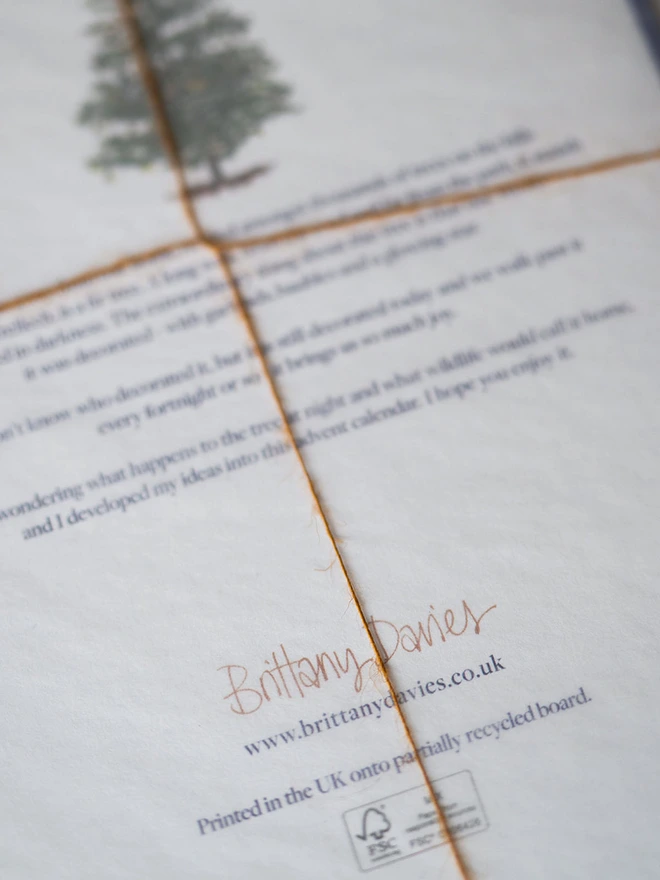 amongst thousands of trees on the hills
A long
in darkness. The extraordinary thing about this tree is that
it was decorated - with garlands, baubles and a glowing star.
don't know who decorated it, but it is still decorated today and we walk past it
every fortnight or so. It brings us so much joy.
wondering what happens to the tree at night and what wildlife would call it home,
and I developed my ideas into this advent calendar. I hope you enjoy it.
Brittany Davies
www.brittanydavies.co.uk
Printed in the UK onto partially recycled board.
MIX
FSC
FSC®